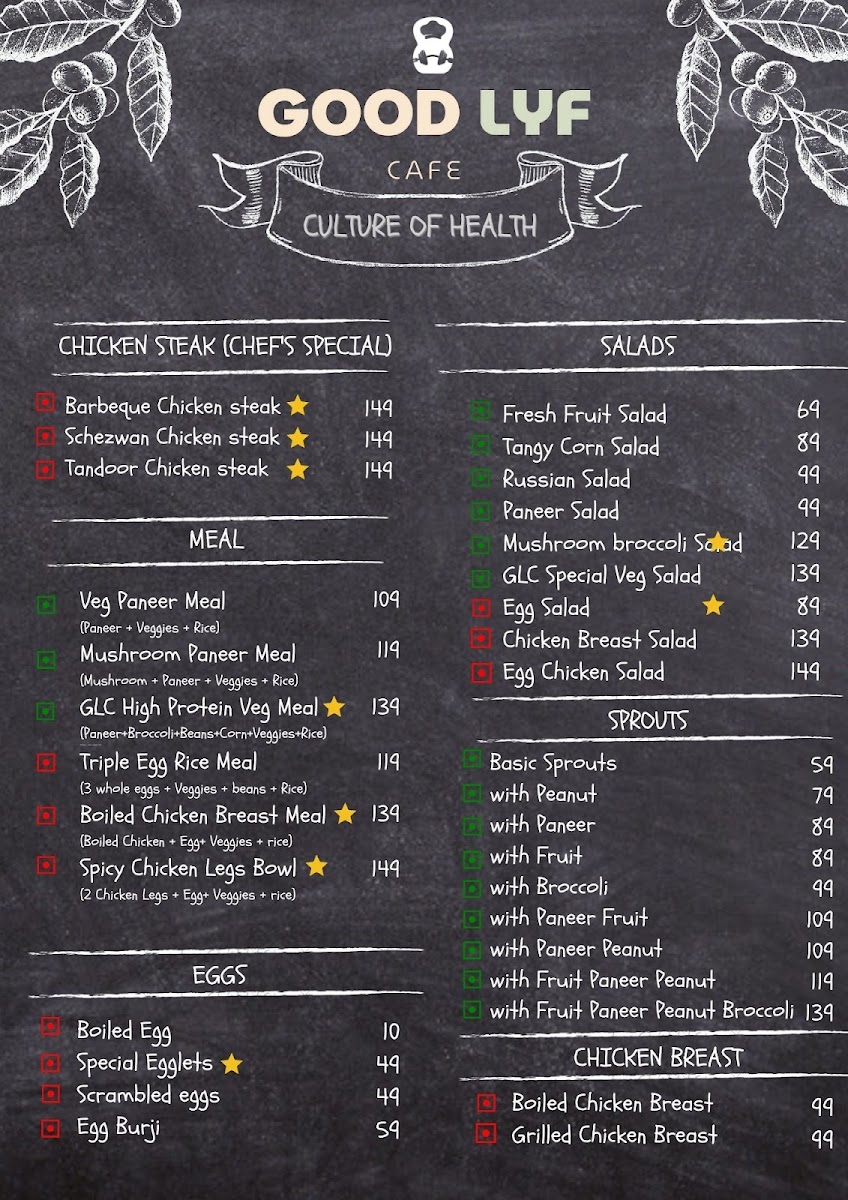 GOOD LYF
CAFE
CULTURE OF HEALTH
CHICKEN STEAK (CHEF'S SPECIAL)
Barbeque Chicken steak 149
Schezwan Chicken steak 149
Tandoor Chicken steak 149
MEAL
Veg Paneer Meal 109
(Paneer + Veggies + Rice)
Mushroom Paneer Meal 119
(Mushroom + Paneer + Veggies + Rice)
GLC High Protein Veg Meal 139
(Paneer+Broccoli+Beans+Corn+Veggies+Rice)
Triple Egg Rice Meal 119
(3 whole eggs + Veggies + beans + Rice)
Boiled Chicken Breast Meal 139
(Boiled Chicken + Egg+ Veggies + rice)
Spicy Chicken Legs Bowl 149
(2 Chicken Legs + Egg+ Veggies + rice)
EGGS
Boiled Egg 10
Special Egglets 49
Scrambled eggs 49
Egg Burji 59
SALADS
Fresh Fruit Salad 69
Tangy Corn Salad 89
Russian Salad 99
Paneer Salad 99
Mushroom broccoli Salad 129
GLC Special Veg Salad 139
Egg Salad 89
Chicken Breast Salad 139
Egg Chicken Salad 149
SPROUTS
Basic Sprouts 59
with Peanut 79
with Paneer 89
with Fruit 89
with Broccoli 99
with Paneer Fruit 109
with Paneer Peanut 109
with Fruit Paneer Peanut 119
with Fruit Paneer Peanut Broccoli 139
CHICKEN BREAST
Boiled Chicken Breast 99
Grilled Chicken Breast 99